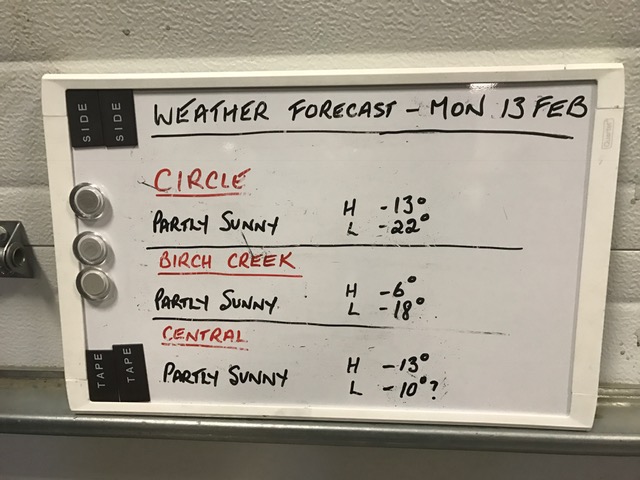 WEATHER FORECAST - MON 13 FEB
SIDE
SIDE
CIRCLE
PARTLY SUNNY H -13°
L -22°
BIRCH CREEK
PARTLY SUNNY H -6°
L -18°
CENTRAL
PARTLY SUNNY H -13°
L -10°?
TAPE
TAPE